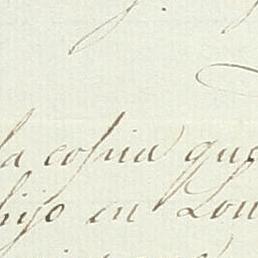 la copia que
hijo en Lon